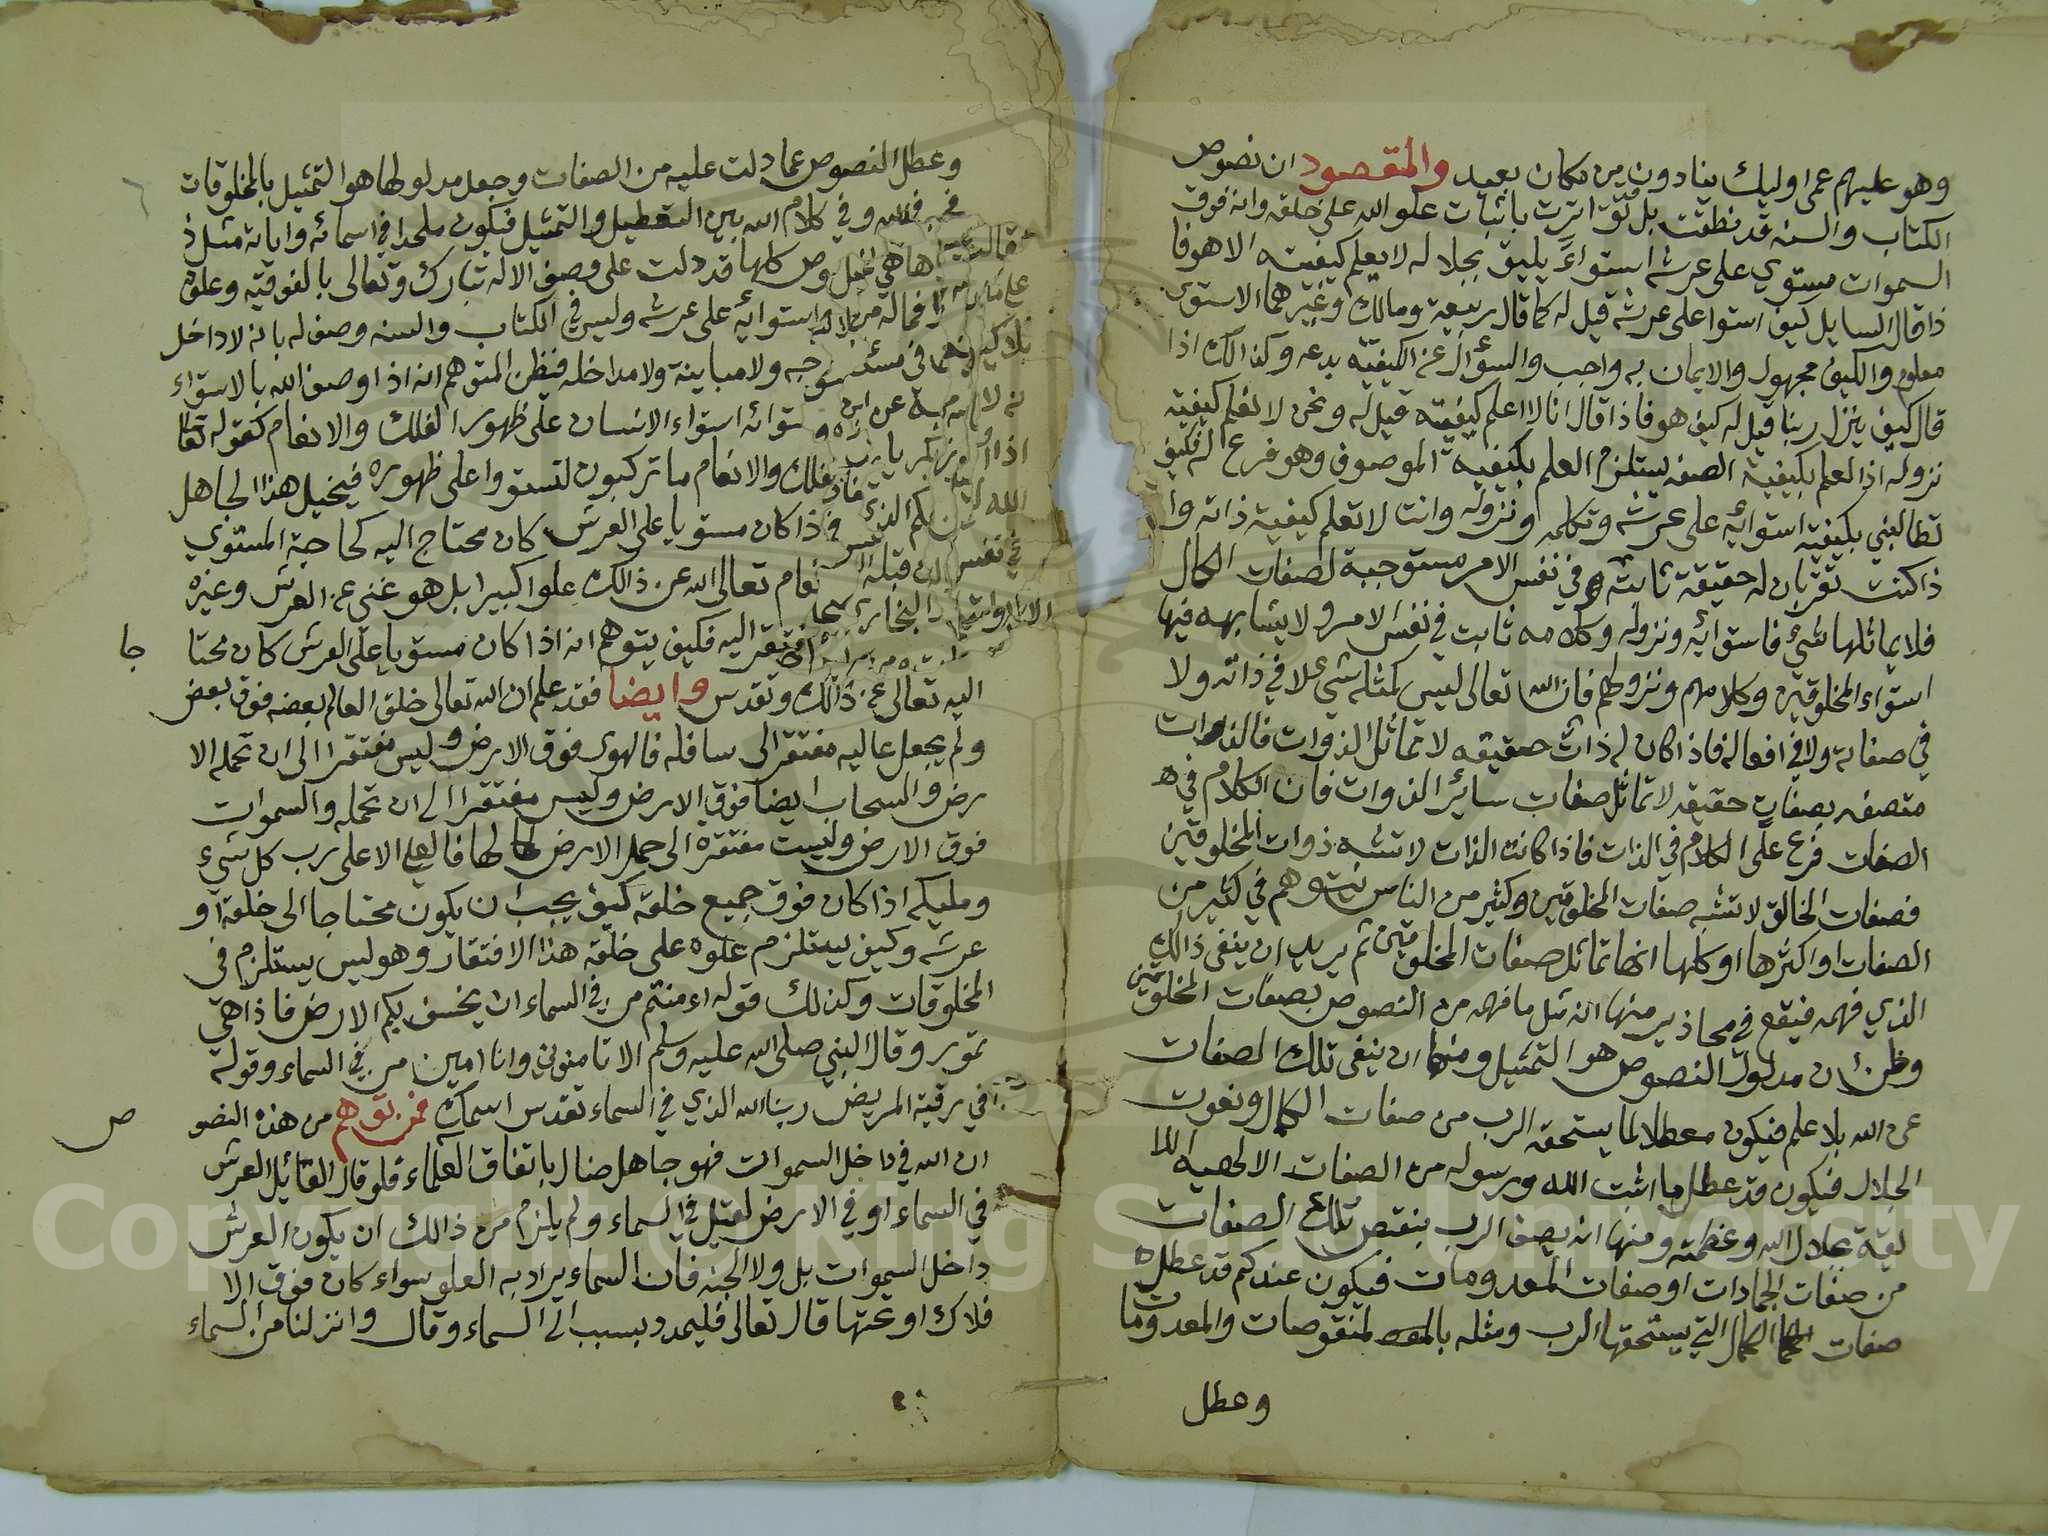 وهو عليهم عمى اوليك ينادون من مكان بعيد والمقصود ان نصوص
الكتاب والسنه قد نطقت بل تواترت باثبات علو الله على خلقه وانه فوق
السموات مستوي على عرشه استواءً يليق بجلاله لا يعلم كيفيته الا هو فا
ذا قال السايل كيف استوا على عرشه قيل له كما قال ربيعة ومالك وغيرهما الاستوى
معلوم والكيف مجهول والايمان به واجب والسؤال عن الكيفيه بدعه وكذالك اذا
قال كيف ينزل ربنا قيل له كيف هو فاذا قال انا لا اعلم كيفيته قيل له ونحن لا نعلم كيفية
نزوله اذ العلم بكيفية الصفه يستلزم العلم بكيفية الموصوف وهو فرع له فكيف
تطالبني بكيفية استوائه على عرشه وتكلمه ونزوله وانت لا تعلم كيفية ذاته وا
ذا كنت تقر بان له حقيقة ثابته في نفس الامر مستوجبة لصفات الكمال
فلا يماثلها شيء فاستوائه ونزوله وكلامه ثابت في نفس الامر ولا يشابهه فيها
استواء المخلوقين وكلامهم ونزولهم فان الله تعالى ليس كمثله شي لا في ذاته ولا
في صفاته ولا في افعاله فاذا كان له ذات حقيقه لا تماثل الذوات فالذات
متصفه بصفات حقيقه لا تماثل صفات سائر الذوات فان الكلام في
الصفات فرع على الكلام في الذات فاذا كانت الذات لا تشبه ذوات المخلوقين
فصفات الخالق لا تشبه صفات المخلوقين وكثير من الناس يتوهم في كثير من
الصفات او اكثرها او كلها انها تماثل صفات المخلوقين ثم يريد ان ينفى ذالك
الذي فهمه فيقع في محاذير منها انه مثل ما فهمه من النصوص بصفات المخلوقين
وظن ان مدلول النصوص هو التمثيل ومنها ان ينفى تلك الصفات
عن الله بلا علم فيكون معطلا لما يستحقه الرب من صفات الكمال ونعوت
الجلال فيكون قد عطل ما اثبت الله ورسوله من الصفات الالهيه اللا
يقة بجلال الله وعظمته ومنها انه يصف الرب بنقص تلك الصفات
من صفات الجمادات او صفات المعدومات فيكون عندكم قد عطل
صفات الكمال التي يستحقها الرب ومثله بالمنقوصات والمعدومات
وعطل
وعطل النصوص عما دلت عليه من الصفات وجعل مدلولها هو التمثيل بالمخلوقات
في الله وفي كلام الله بين التعطيل والتمثيل فيكون ملحدا في اسمائه واياته مثل ذ
كلها قد دلت على وصف الاله تبارك وتعالى بالفوقيه وعلوه
استوائه على عرشه وليس في الكتاب والسنه وصف له بانه لا داخل
ولا مباينة ولا مداخله فيظن المتوهم انه اذا وصف الله بالاستواء
استواء الانسان على ظهور الفلك والانعام كقوله تعالى
والانعام ما تركبون لتستووا على ظهوره فيخيل هذا الجاهل
ذا كان مستويا على العرش كان محتاج اليه كحاجة المستوي
تعالى الله عن ذالك علوا كبيرا بل هو غني عن العرش وغيره
مفتقر اليه فكيف يتوهم انه اذا كان مستويا على العرش كان محتا
جا
اليه تعالى عن ذالك وتقدس وايضا فقد علم ان الله تعالى خلق العالم بعضه فوق بعض
ولم يجعل عاليه مفتقر الى سافله فالهوى فوق الارض وليس مفتقرا الى ان تحمله الا
رض والسحاب ايضا فوق الارض وليس مفتقرا الى ان تحمله والسموات
فوق الارض وليست مفتقره الى حمل الارض لها فالعلي الاعلى رب كل شيء
ومليكه اذا كان فوق جميع خلقه كيف يجب ان يكون محتاجا الى خلقه او
عرشه وكيف يستلزم علوه على خلقه هذا الافتقار وهو ليس يستلزم في
المخلوقات وكذلك قوله اءمنتم من في السماء ان يخسف بكم الارض فاذا هي
تمور وقال النبي صلى الله عليه وسلم الا تامنوني وانا امين من في السماء وقوله
في رقية المريض ربنا الله الذي في السماء تقدس اسمك فمن توهم من هذه النصو
ص
ان الله في داخل السموات فهو جاهل ضال باتفاق العلماء فلو قال القائل العرش
في السماء او في الارض لقيل في السماء ولم يلزم من ذالك ان يكون العرش
داخل السموات بل ولا الجنه فان السماء يراد به العلو سواء كان فوق الا
فلاك او تحتها قال تعالى فليمدد بسبب الى السماء وقال وانزلنا من السماء
Copyright © King Saud University